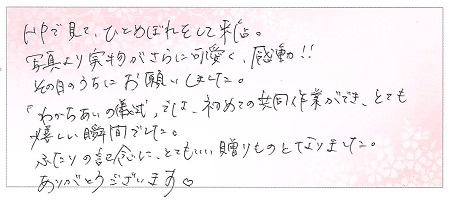 HPで見て、ひとめぼれをして来店。
写真より実物がさらに可愛く、感動!!
その日のうちにお願いしました。
「わかちあいの儀式」では、初めての共同作業ができ、とても
嬉しい瞬間でした。
ふたりの記念に、とてもいい贈りものとなりました。
ありがとうございます♡